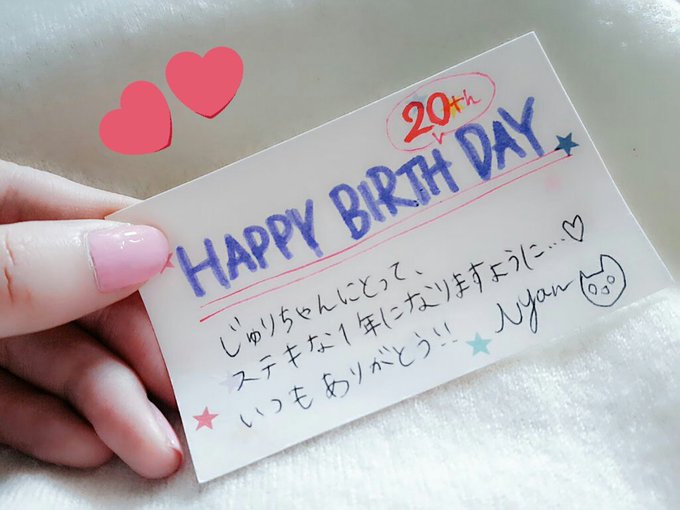 20th
HAPPY BIRTH DAY
じゅりちゃんにとって、
ステキな1年になりますように…♡
いつもありがとう!! Nyan